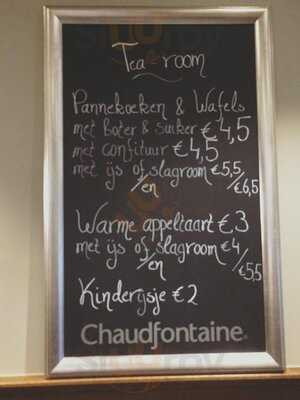 Tea room
Pannekoeken & Wafels
met Boter & Suiker €4,5
met confituur €4,5
met ijs of slagroom €5,5
/en /€6,5
Warme appeltaart €3
met ijs of slagroom €4
/en /€5,5
Kinderijsje €2
Chaudfontaine